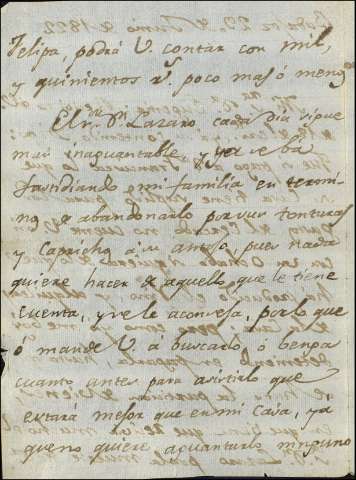 Felipa, podrá V. contar con mil,
y quinientos r.s poco mas ó menos
El Sr. Dn. Lazaro cada dia sigue
mas inaguantable, y ya se bá
fastidiando mi familia en termi
nos de abandonarlo por sus tonturas
y Caprichos á su antojo, pues nada
quiere hacer de aquello que le tiene
Cuenta, y se le aconseja, por lo que
ó mande V. a buscarlo, ó benga
cuanto antes para asistirlo que
estará mejor que en mi Casa, ya
que no quiere aguantarlo ninguno